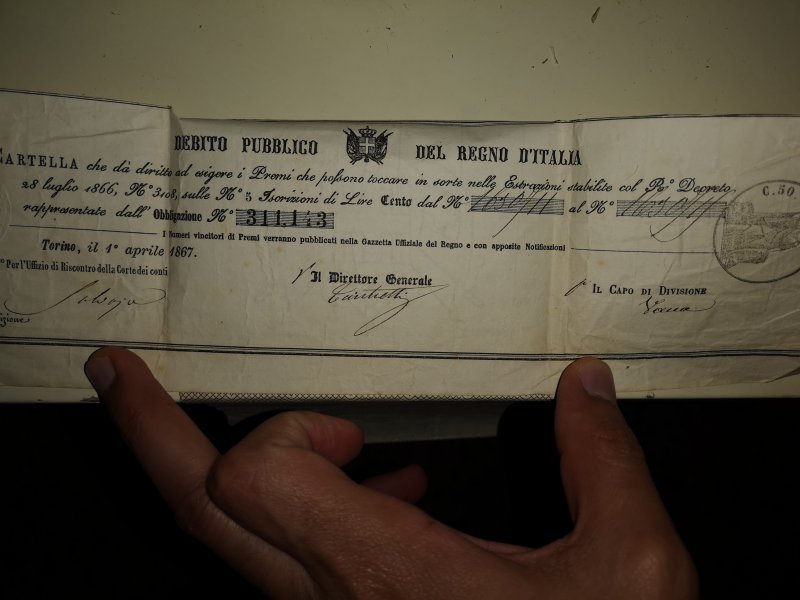 DEBITO PUBBLICO DEL REGNO D'ITALIA
CARTELLA che dà diritto ad esigere i Premi che possono toccare in sorte nelle Estrazioni stabilite col R.º Decreto
28 luglio 1866, N.º 3108, sulle N.º 5 Iscrizioni di Lire Cento dal N.º al N.º
rappresentate dall' Obbligazione N.º 311,143
I Numeri vincitori di Premi verranno pubblicati nella Gazzetta Uffiziale del Regno e con apposite Notificazioni
Torino, il 1º aprile 1867.
Per l'Uffizio di Riscontro della Corte dei conti
Il Direttore Generale
IL CAPO DI DIVISIONE
C. 50